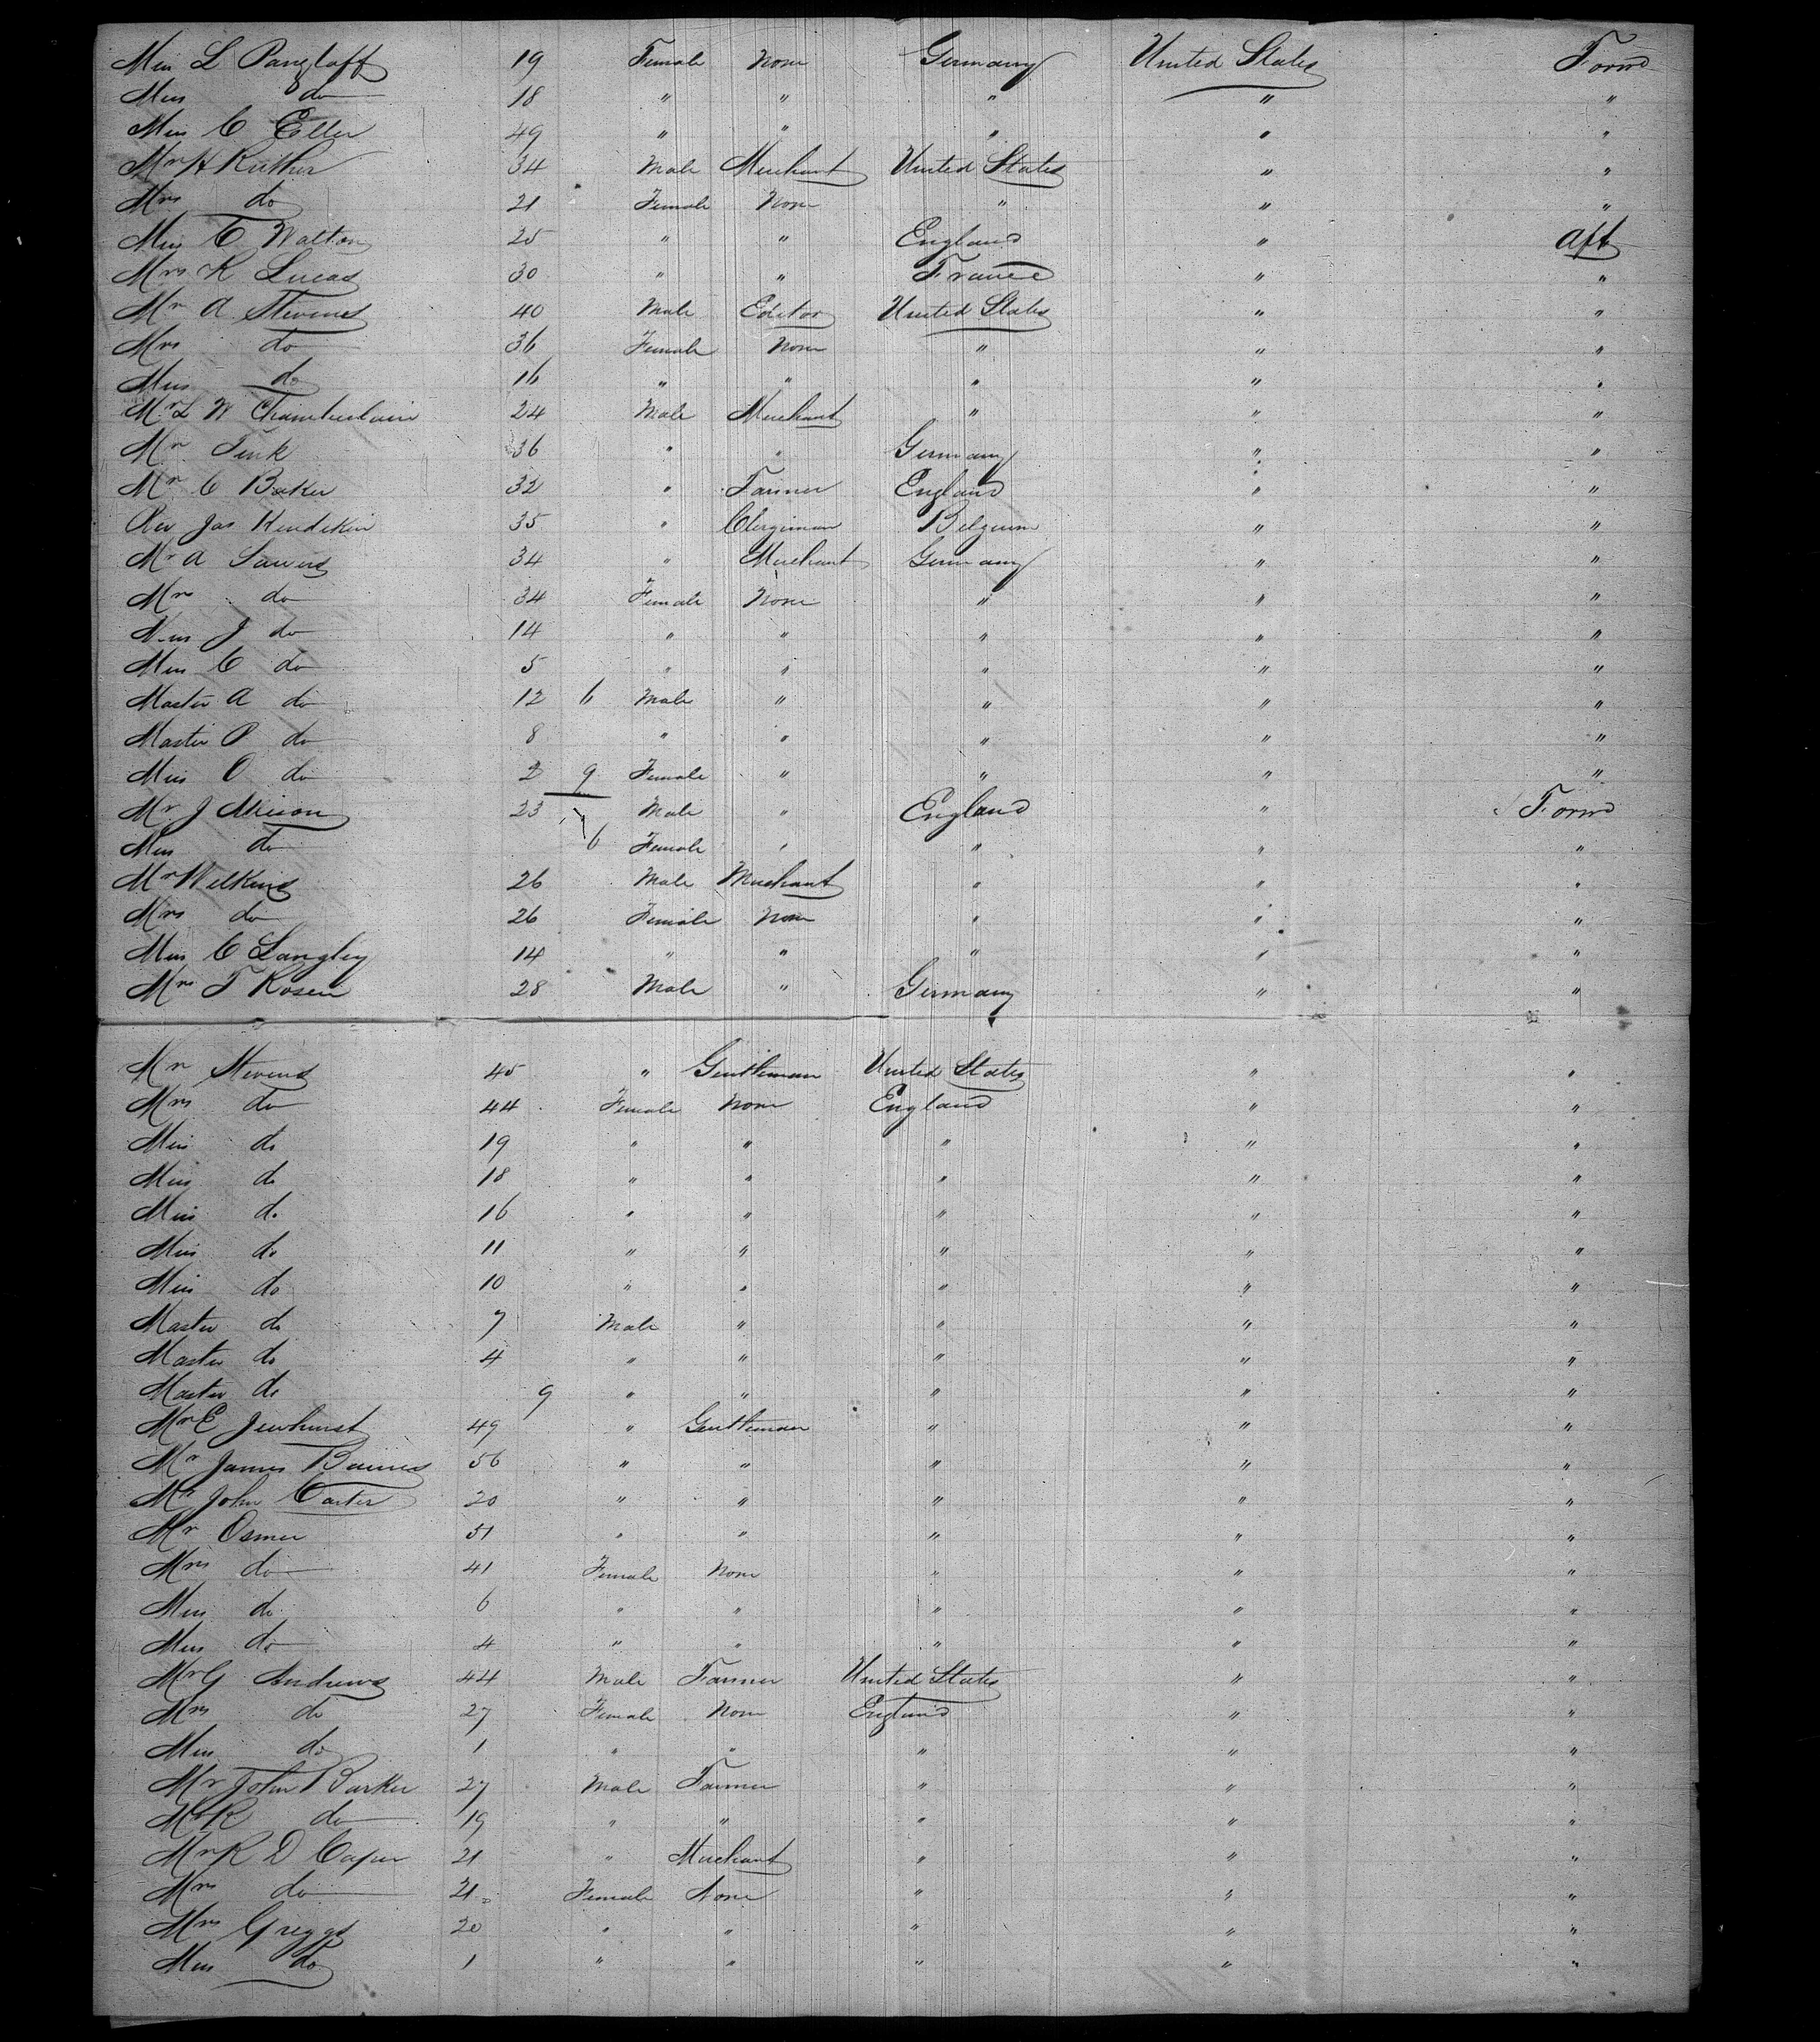 Miss L Pangloff 19 Female None Germany United States Forwd
Miss do 18 " " " " "
Miss C Eller 49 " " " " "
Mr H Ruther 34 Male Merchant United States " "
Mrs do 21 Female None " " "
Miss C Walton 25 " " England " Aft
Mrs K Lucas 30 " " France " "
Mr A Stevens 40 Male Editor United States " "
Mrs do 36 Female None " " "
Miss do 16 " " " " "
Mr L W Chamberlain 24 Male Merchant " " "
Mr Fink 36 " " Germany " "
Mr C Baker 32 " Farmer England " "
Rev Jas Hendekin 35 " Clergiman Belgium " "
Mr A Sauers 34 " Merchant Germany " "
Mrs do 34 Female None " " "
Miss J do 14 " " " " "
Miss C do 5 " " " " "
Master A do 12 6 Male " " " "
Master P do 8 " " " " "
Miss O do 2 9 Female " " " "
Mr J 23 Male " England " Forwd
Miss do 6 Female " " " "
Mr Wilkins 26 Male Merchant " " "
Mrs do 26 Female None " " "
Miss C Langley 14 " " " " "
Mrs F Rosen 28 Male " Germany " "
Mr Stevens 45 " Gentleman United States " "
Mrs do 44 Female None England " "
Miss do 19 " " " " "
Miss do 18 " " " " "
Miss do 16 " " " " "
Miss do 11 " " " " "
Miss do 10 " " " " "
Master do 7 Male " " " "
Master do 4 " " " " "
Master do 9 " " " " "
Mr E Jewhurst 49 " Gentleman " " "
Mr James Baines 56 " " " " "
Mr John Carter 20 " " " " "
Mr Osmer 51 " " " " "
Mrs do 41 Female None " " "
Miss do 6 " " " " "
Miss do 4 " " " " "
Mr G Andrews 44 Male Farmer United States " "
Mrs do 27 Female None England " "
Miss do 1 " " " " "
Mr John Barker 27 Male Farmer " " "
Mr R do 19 " " " " "
Mr R D Caper 21 " Merchant " " "
Mrs do 21 Female None " " "
Mrs Griggs 20 " " " " "
Miss do 1 " " " " "